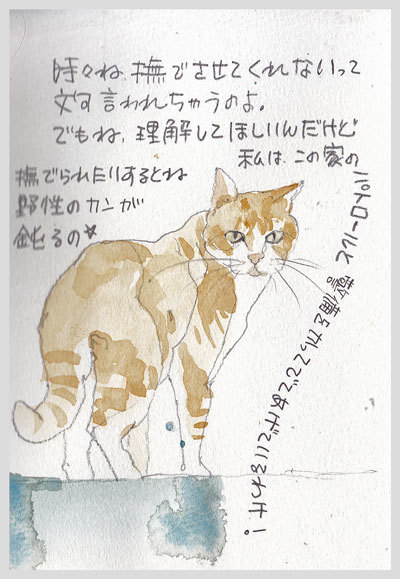 時々ね、撫でさせてくれないって
文句言われちゃうのよ。
でもね、理解してほしいんだけど
私は、この家の
パトロールと警備とかってでてあげているわけ!
撫でられたりするとね
野性のカンが
鈍るの★